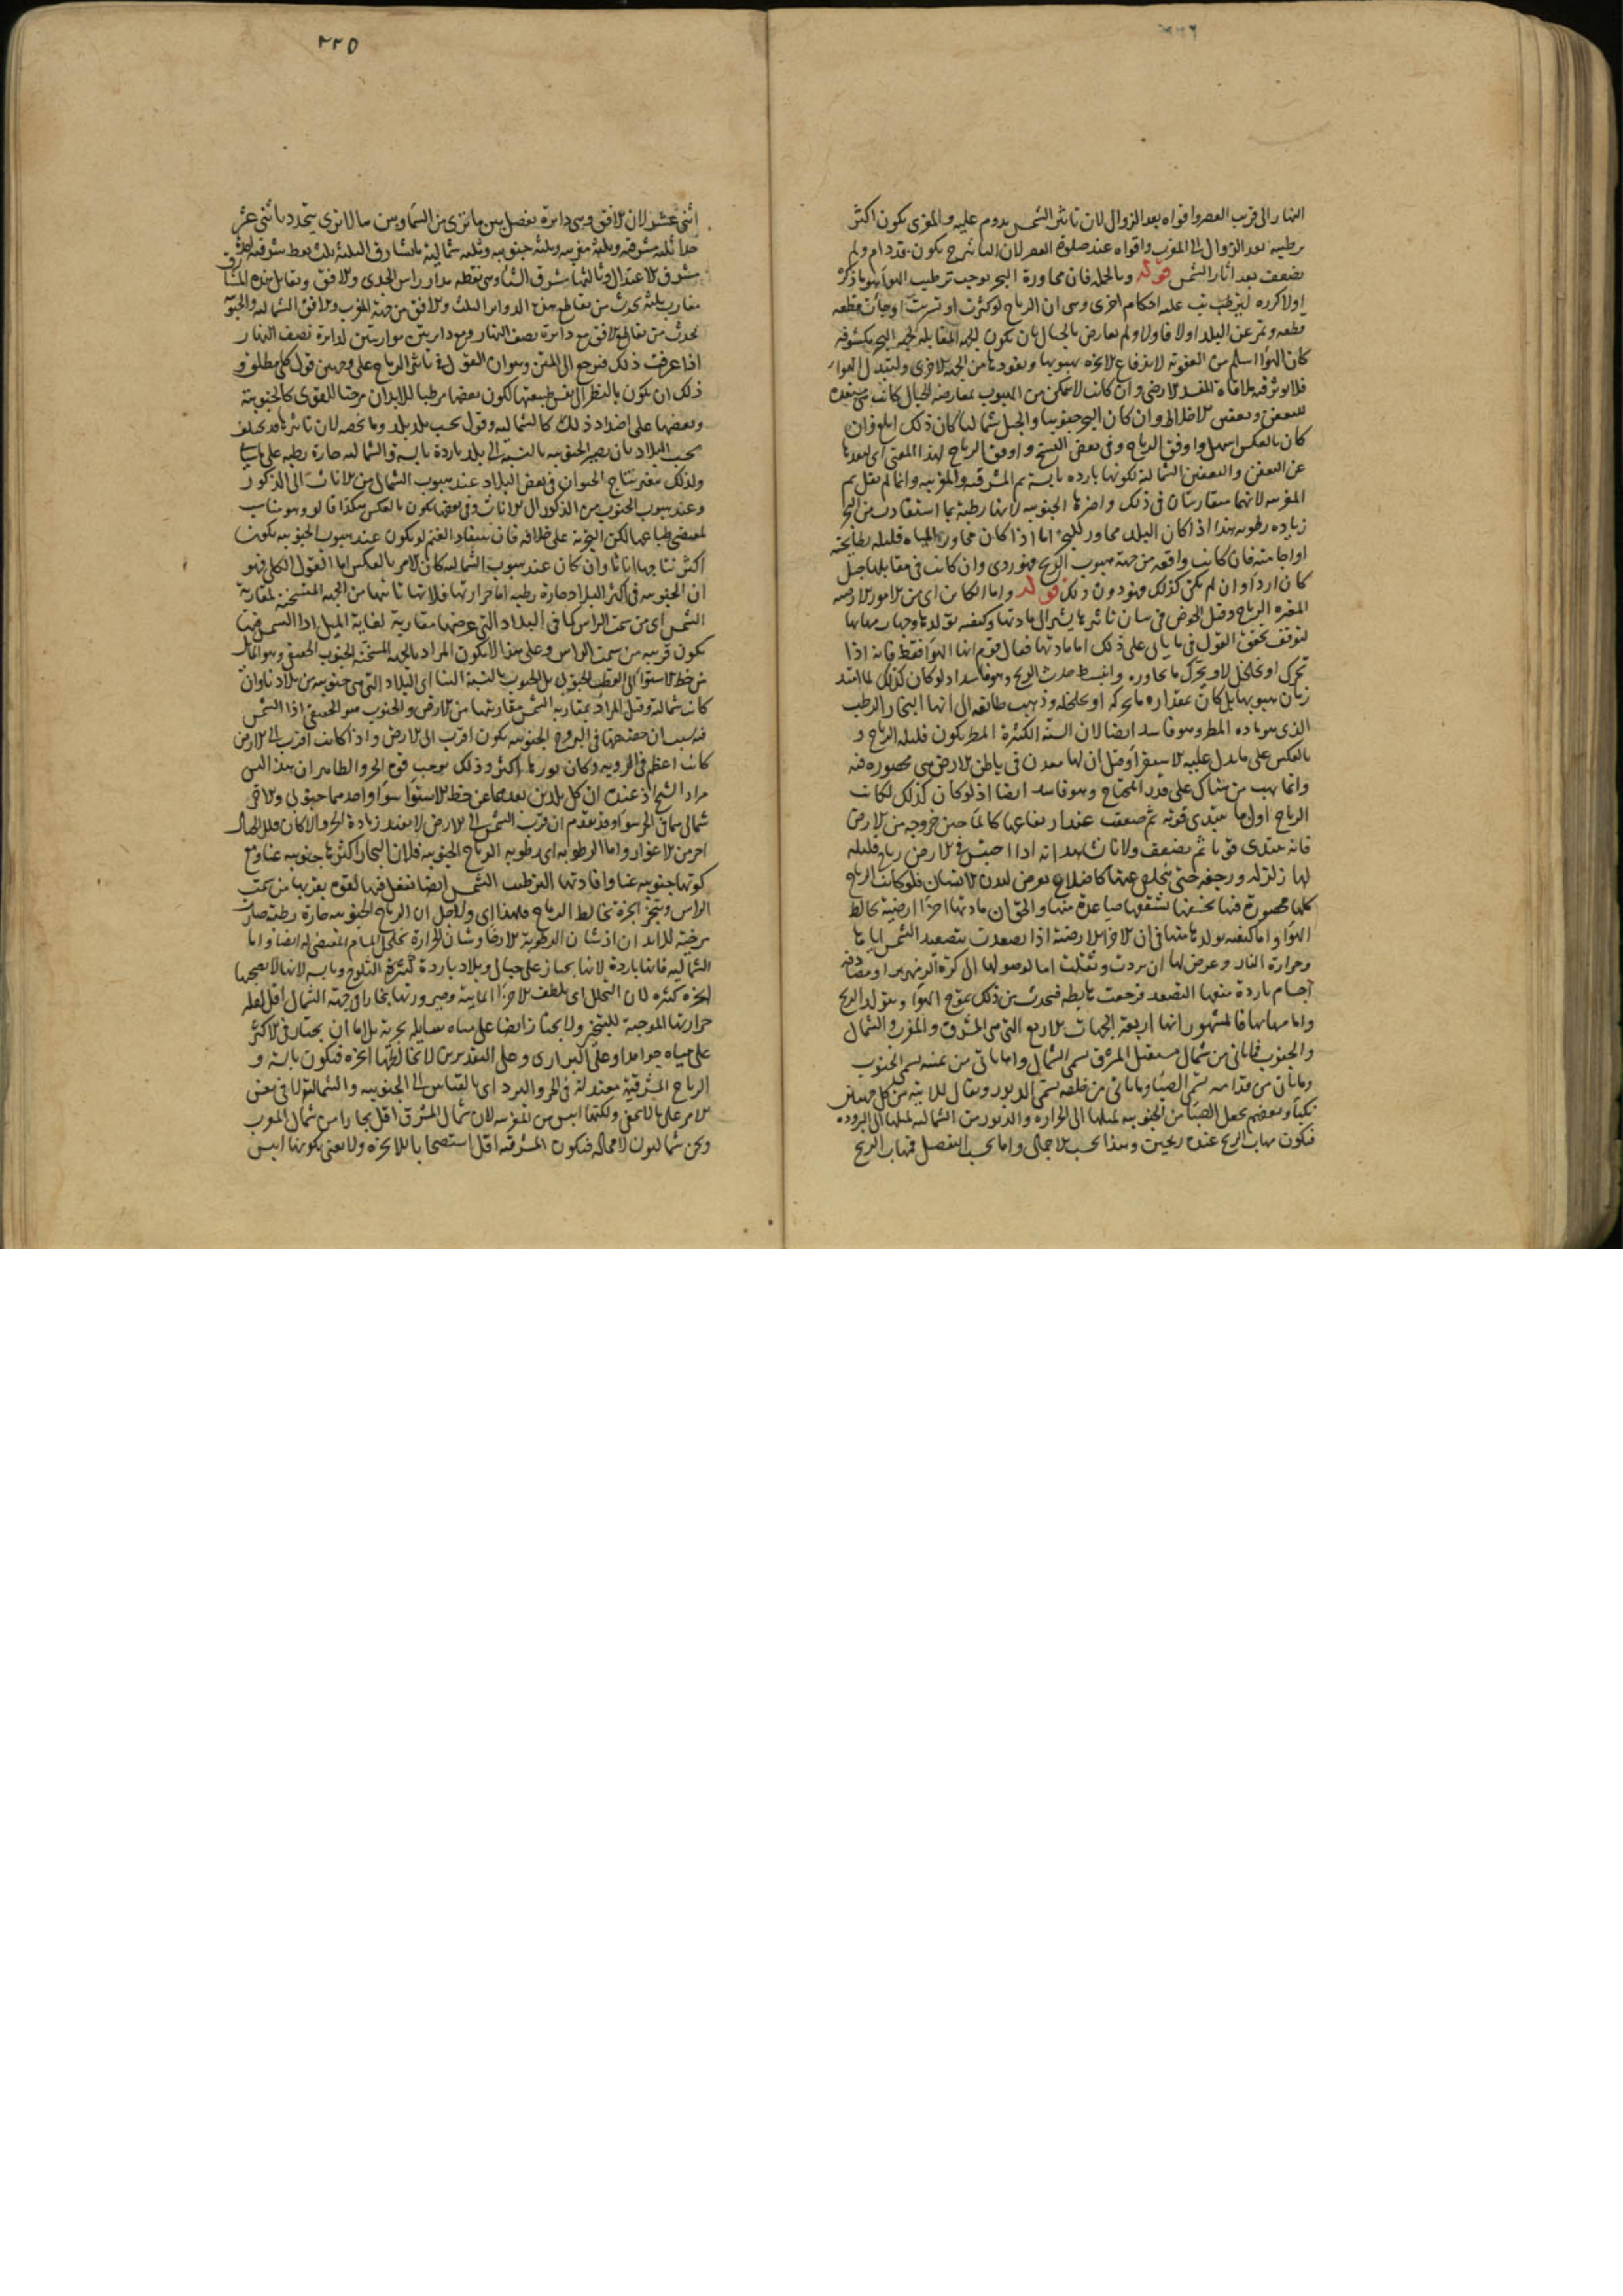 النهار الى قرب العصر واقواه بعد الزوال لان تاثير الشمس يدوم عليه والمغربى يكون اكثر
ترطيبه بعد الزوال الى المغرب واقواه عند صلوة العصر لان التاثير ح يكون قد دام ولم
يضعف بعد اثار الشمس قوله وبالجملة فان مجاورة البحر يوجب ترطيب الهواء هو ما ذكره
اولا كرره ليترتب عليه احكام اخرى وهى ان الرياح لو كثرت او تسربت او جات قطعه
قطعه وتمر عن البلد اولا فاولا ولم تعارض بالجبال بان يكون الجهة المقابلة لجهة البحر مكشوفة
كان الهواء اسلم من العفونة لاندفاع الابخرة بهبوبها ونفوذها من الجهة الاخرى ولتبدل الهواء
فلا يوثر فيه ملاقاة المفسد الارضى وان كانت لا تتمكن من الهبوب بمعارضة الجبال كانت مستعدة
للتعفن وتعفين الاخلاط وان كان البحر جنوبيا والجبل شماليا كان ذلك ابلغ وان
كان بالعكس اسهل واوفق الرياح وفى بعض النسخ واوفق الرياح لهذا المعنى اى بعدها
عن التعفن والتعفين الشمالية لكونها باردة يابسة ثم المشرقية والمغربية وانما لم يقل ثم
المغربية لانهما متقاربتان فى ذلك واضرها الجنوبية لانها رطبة بما استفادت من البحر
زياده رطوبه هذا اذا كان البلد مجاور للبحر اما اذا كان مجاور المياه قليله بطايحية
او اجامية فان كانت واقعه من جهة هبوب الريح فهو ردى وان كانت فى مقابلها جبل
كان اردا وان لم تكن كذلك فهو دون ذلك قوله واما الكائن اى من الامور الارضية
المغيره الرياح وقبل الخوض فى بيان تاثيرها يشير الى مادتها وكيفية تولدها وجهات مهابها
لتوقف تحقق القول فى ما ياتى على ذلك اما مادتها فقال قوم انها الهواء فقط فانه اذا
تحرك او تخلخل لا ويتحرك ما يجاوره وانبسط حدث الريح وهو فاسد اذ لو كان كذلك لما امتد
زمان هبوبها بل كان بمقدار ما يحركه او يخلخله وذهبت طائفة الى انها البخار الرطب
الذى هو ماده المطر وهو فاسد ايضا لان السنة الكثيرة المطر يكون قليلة الرياح و
بالعكس على ما يدل عليه الاستقراء وقيل ان لها معدن فى باطن الارض هى محصوره فيه
وانما يهب من هناك على قدر المحتاج وهو فاسد ايضا اذ لو كان كذلك لكانت
الرياح اول ما يبتدى قويه ثم ضعفت عند ارتفاعها كالماء حين خروجه من الارض
فانه يبتدى قويا ثم يضعف ولانا نشاهد انه اذا احتبس فى الارض رياح قليله
لها زلزله ورجفه حتى يتخلص عنها كالصلاع يعرض لبدن الانسان فلو كانت الرياح
كلها محصورة فيها لخسفتها بشقها صاعدة منها والحق ان مادتها اجزاء ارضية تخالط
الهواء واما كيفية تولدها منها فى ان الاجزاء الارضية اذا تصعدت بتصعيد الشمس اياها
وحرارة النار وعرض لها ان بردت وثقلت اما لوصولها الى كرة الزمهرير او مصادفة
اجسام باردة منعها التصعد فرجعت هابطه فيحدث من ذلك تموج الهواء ويتولد الريح
واما مهابها فالمشهور انها اربعة الجهات الاربع التى هى المشرق والمغرب والشمال
والجنوب فما ياتى من شمال مستقبل المشرق يسمى الشمال وما ياتى من يمينه يسمى الجنوب
وما ياتى من قدامه يسمى الصبا وما ياتى من خلفه يسمى الدبور ويقال للاتية من كل جهتين
نكبا وبعضهم يجعل الصبا من الجنوبيه لميلها الى الحراره والدبور من الشماليه لميلها الى البروده
فيكون مهاب الريح عنده ريحين وهذا بحسب الاجمال واما بحسب التفصيل فمهاب الريح
٢٢٥
اثنى عشر لان الافق وهى دائرة تفصل بين ما نرى من السماء وبين ما لا نرى يتحدد باثنى عشر
حدا ثلثه مشرقيه وثلثه مغربيه وثلثه جنوبيه وثلثه شمالية فالمشارق الثلثة ثلث نقط مشرق الصيف
مشرق الاعتدال وثالثها مشرق الشتا وهى نقطه مدار راس الجدى والافق ويقابل هذه المشارق
مغارب ثلثه يحدث من تقاطع هذه الدوائر الثلث والافق من جهة المغرب والافق الشماليه والجنوبيه
يحدث من تقاطع الافق مع دائرة نصف النهار ومع دائرتين موازيتين لدائرة نصف النهار
اذا عرفت ذلك فنرجع الى المتن وهو ان القول فى تاثير الرياح على وجهين قول كلى مطلق و
ذلك ان يكون بالنظر الى نفس طبيعتها لكون بعضها مرطبا للابدان مرخيا للقوى كالجنوبية
وبعضها على اضداد ذلك كالشماليه وقول بحسب بلد بلد وما يخصه لان تاثيرها قد يختلف
بحسب البلاد بان يصير الجنوبيه بالنسبة الى بلد باردة يابسه والشماليه حارة رطبه على ما سياتى
ولذلك يتغير نتاج الحيوان فى بعض البلاد عند هبوب الشمال من الاناث الى الذكور
وعند هبوب الجنوب من الذكور الى الاناث وفى بعضها يكون بالعكس هكذا قالو وهو مناسب
لمقتضى طباعهما لكن التجربة على خلافه فان سفاد الغنم لو يكون عند هبوب الجنوبيه يكون
اكثر نتاجها اناثا وان كان عند هبوب الشماليه كان الامر بالعكس اما القول الكلى فهو
ان الجنوبيه فى اكثر البلاد حارة رطبه اما حرارتها فلانها تاتينا من الجهة المتسخنة لمقاربة
الشمس اى من سمت الراس كما فى البلاد التى عرضها مقاربة لغاية الميل اذ الشمس فيها
يكون قريبه من سمت الراس وعلى هذا لا يكون المراد بالجهة المسخنة الجنوب الحقيقى وهو المائل
من خط الاستواء الى القطب الجنوبى بل الجنوب بالنسبة الينا اى البلاد التى هى جنوبيه من بلادنا وان
كانت شمالية وقيل المراد بمقاربه الشمس مقاربتها من الارض والجنوب هو الحقيقى اذ الشمس
فيه بسبب ان حضيضها فى البروج الجنوبيه يكون اقرب الى الارض واذا كانت اقرب الى الارض
كانت اعظم فى الرويه وكان نورها اكثر وذلك يوجب قوة الحر والظاهر ان هذا ليس
مراد الشيخ اذ عنده ان كل بلدين بعدهما عن خط الاستواء سواء واحدهما جنوبى والاخر
شمالى هما فى الحر سواء وقد تقدم ان قرب الشمس الى الارض لا يفيد زيادة الحر والا كان قلل الجبال
احر من الاغوار واما الرطوبه اى رطوبه الرياح الجنوبيه فلان البحار اكثرها جنوبيه عنا ومع
كونها جنوبيه عنا وافادتها الترطيب الشمس ايضا تفعل فيها لقوه بقربها من سمت
الراس وتبخر ابخرة تخالط الرياح فلهذا اى ولاجل ان الرياح الجنوبيه حارة رطبه صارت
مرخية للابدان اذ شان الرطوبة الارخاء وشان الحرارة تخلخل المسام المقتضى له ايضا واما
الشماليه فانها باردة لانها يجتاز على جبال وبلاد باردة كثيرة الثلوج ويابسه لانها لا يصحبها
ابخره كثيره لان التحلل اى تلطف الاجزاء المائية وصيرورتها بخارا فى جهة الشمال اقل لقله
حرارتها الموجبة للتبخر ولا يجتاز ايضا على مياه سايله بحرية بل اما ان يجتاز فى الاكثر
على مياه جوامد او على البرارى وعلى التقديرين لا يخالطها ابخره فيكون يابسة و
الرياح المشرقية معتدلة فى الحر والبرد اى بالقياس الى الجنوبيه والشمالية لا فى نفس
الامر على ما لا يخفى ولكنها ايبس من المغربيه لان شمال المشرق اقل بخارا من شمال المغرب
ونحن شماليون لا محالة فيكون المشرقيه اقل استصحابا للابخره ولا يعنى بكونها ايبس